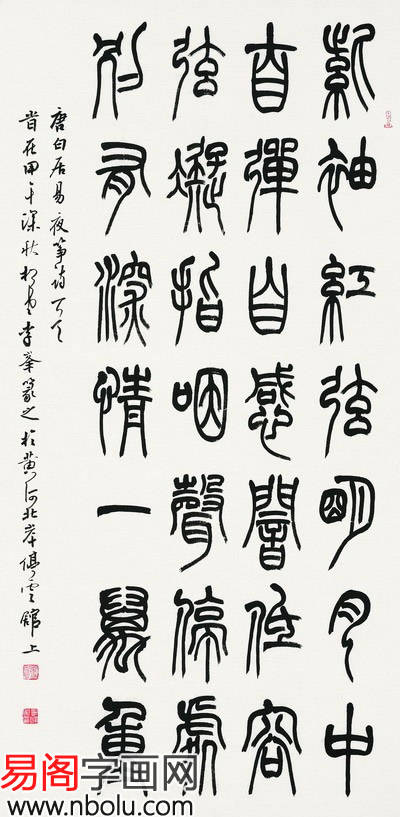 紫袖紅弦明月中
自彈自感闇低容
弦凝指咽聲停處
別有深情一萬重
唐白居易夜箏詩
旹在甲午深秋李峯篆之於黃河北岸雲館上
易阁字画网
www.nbolu.com